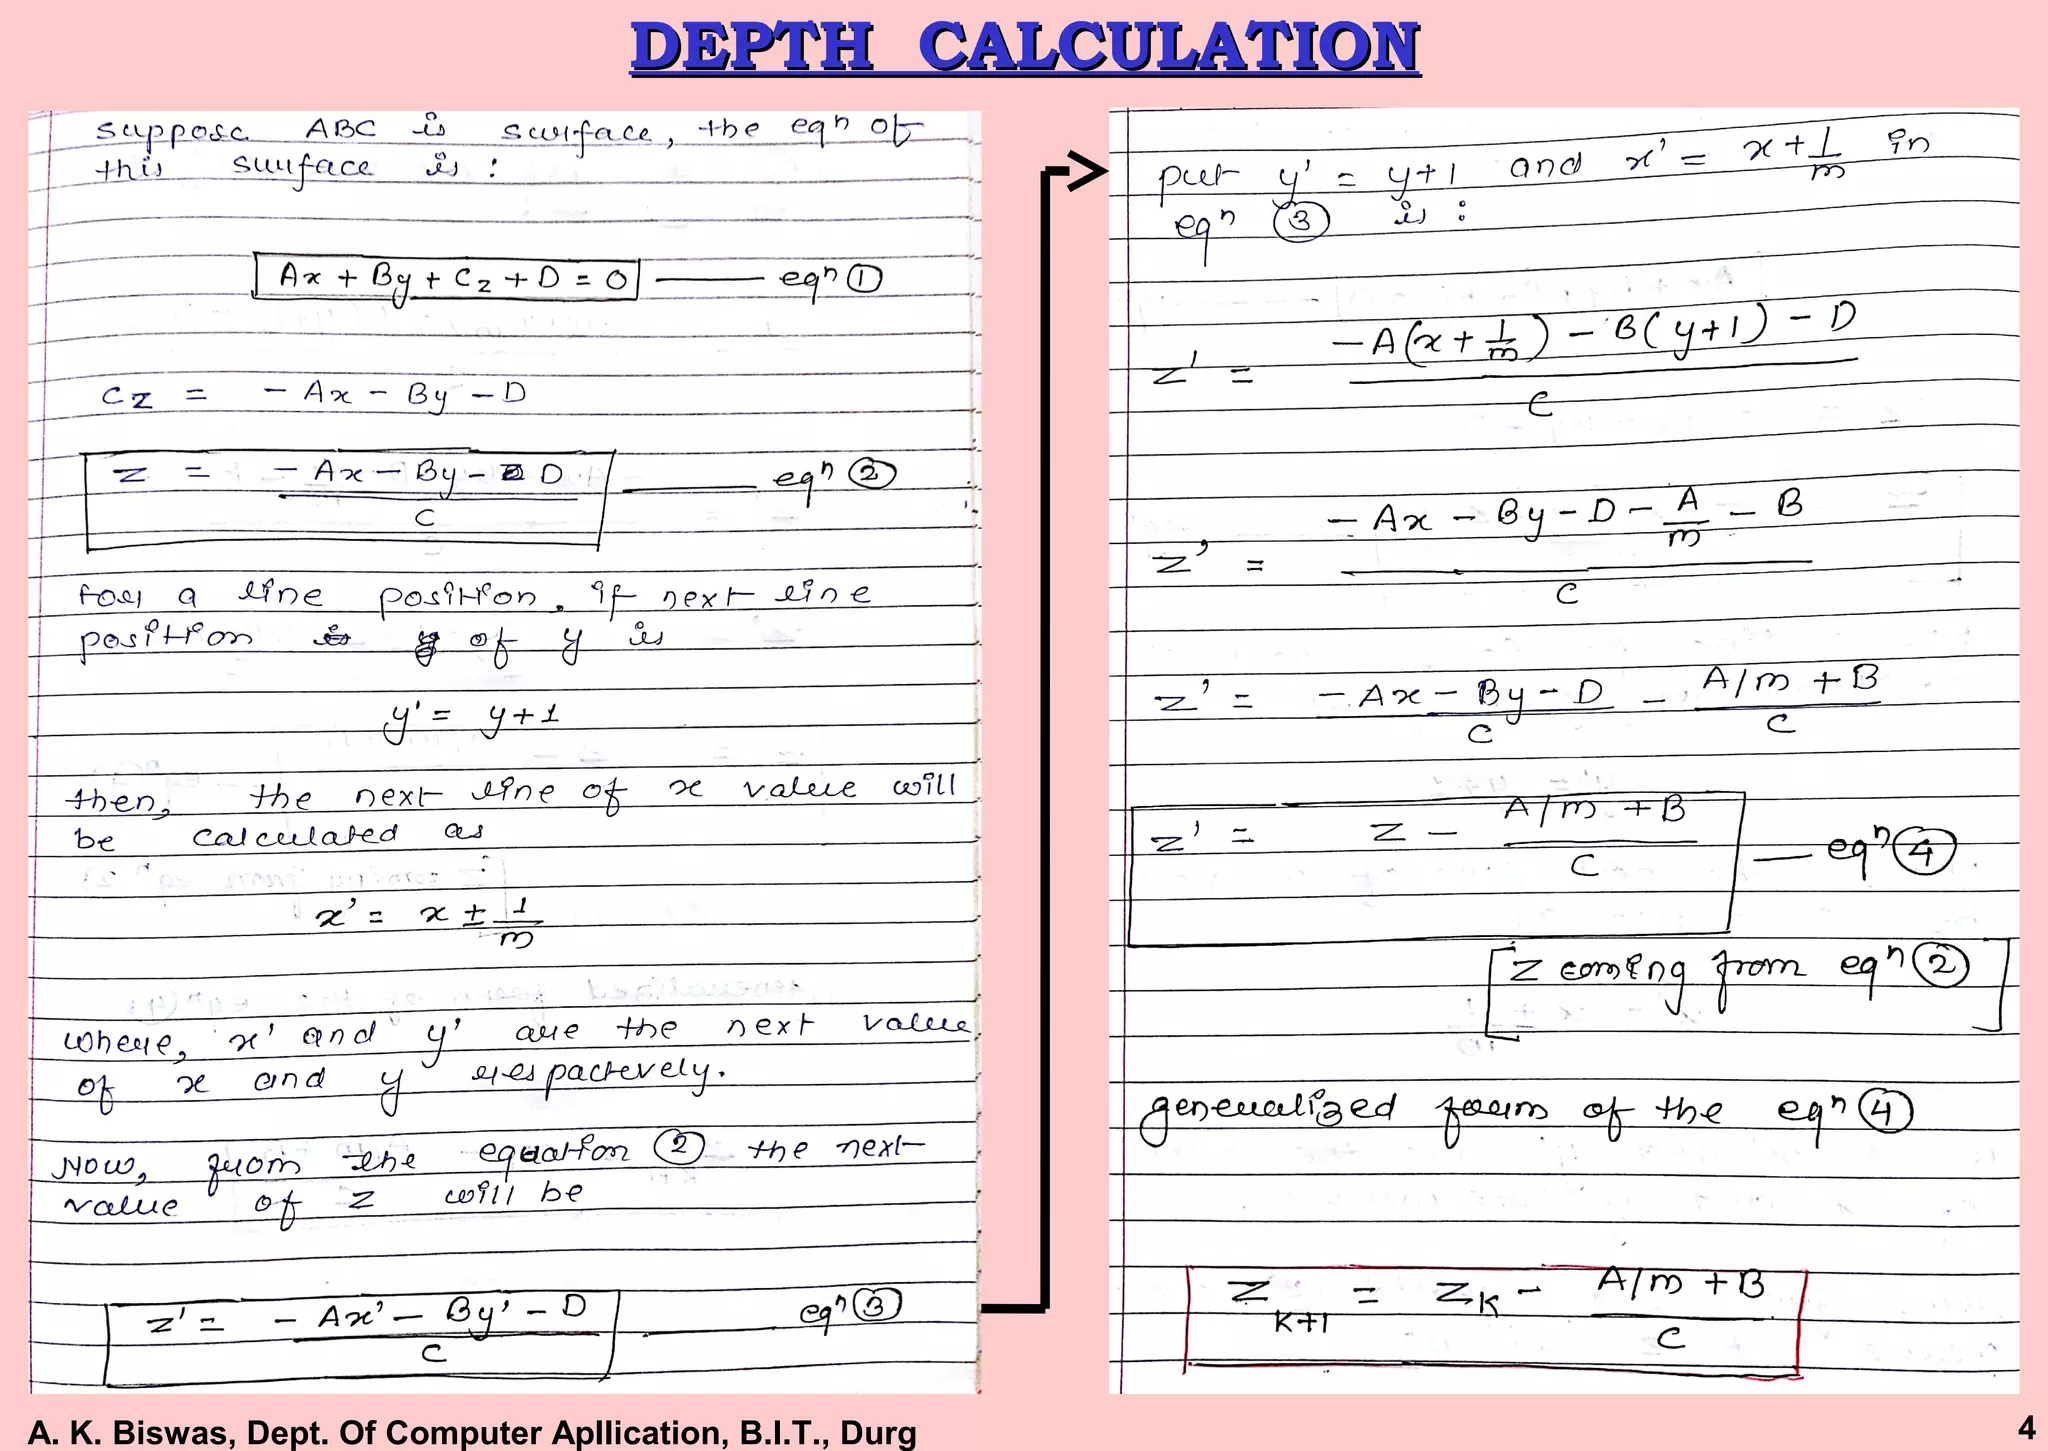 DEPTH CALCULATION
suppose ABC is surface, the eqn of
this surface is :
Ax + By + Cz + D = 0 —— eqn ①
Cz = - Ax - By - D
z = - Ax - By - D —— eqn ②
C
for a line position, if next line
position of y is
y' = y+1
then, the next line of x value will
be calculated as
x' = x ± 1/m
where, x' and y' are the next value
of x and y respactevely.
Now, from the equation ② the next
value of z will be
z' = - Ax' - By' - D —— eqn ③
C
put y' = y+1 and x' = x + 1/m in
eqn ③ is :
z' = -A(x + 1/m) - B(y+1) - D
C
z' = - Ax - By - D - A/m - B
C
z' = - Ax - By - D - A/m + B
C C
z' = z - A/m + B — eqn ④
C
[z coming from eqn ②]
generalized foarm of the eqn ④
Z K+1 = Z K - A/m + B
C
A. K. Biswas, Dept. Of Computer Apllication, B.I.T., Durg
4